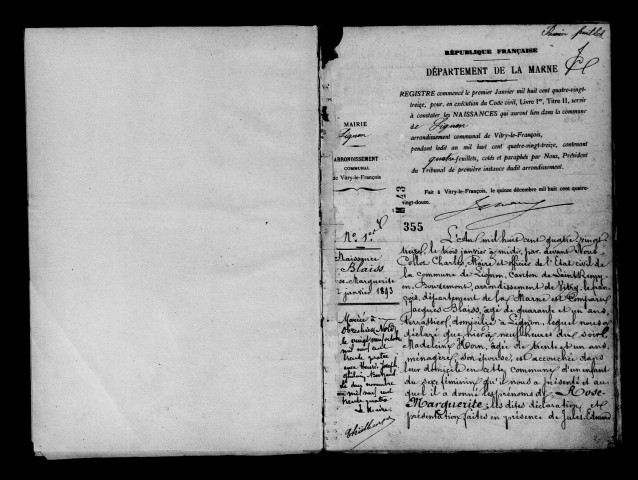 Premier feuillet
RÉPUBLIQUE FRANÇAISE
DÉPARTEMENT DE LA MARNE
REGISTRE commencé le premier Janvier mil huit cent quatre-vingt-
treize, pour, en exécution du Code civil, Livre Ier, Titre II, servir
à constater les NAISSANCES qui auront lieu dans la commune
de Lignon
arrondissement communal de Vitry-le-François,
pendant ledit an mil huit cent quatre-vingt-treize, contenant
quatre feuillets, cotés et paraphés par Nous, Président
du Tribunal de première instance dudit arrondissement.
Fait à Vitry-le-François, le quinze décembre mil huit cent quatre-
vingt-douze.
MAIRIE
Lignon
ARRONDISSEMENT
COMMUNAL
de Vitry-le-François
M 43
355
N° 1er
Naissance
Blaiss
Rose-Marguerite
2 janvier 1893
Mariée à
le vingt
mil neuf cent
trente quatre
avec Henri Joseph
le dix novembre
mil neuf cent
trente quatre
Le Maire
L'An mil huit cent quatre vingt
treize, le trois janvier à midi, par devant Nous
Collot Charles, Maire et officier de l'Etat civil de
la commune de Lignon, canton de Saint Remy
en Bouzemont, arrondissement de Vitry-le-Fran-
çois, département de la Marne est comparu
Jacques Blaiss, âgé de quarante et un ans,
terrassier, domicilié à Lignon, lequel nous a
déclaré que hier à neuf heures du soir,
Madeleine Horn, âgée de trente et un ans,
ménagère, son épouse, est accouchée dans
leur domicile en cette commune d'un enfant
du sexe féminin qu'il nous a présenté et au-
quel il a donné les prénoms de Rose-
Marguerite; les dites déclaration et
présentation faites en présence de Jules Edmond